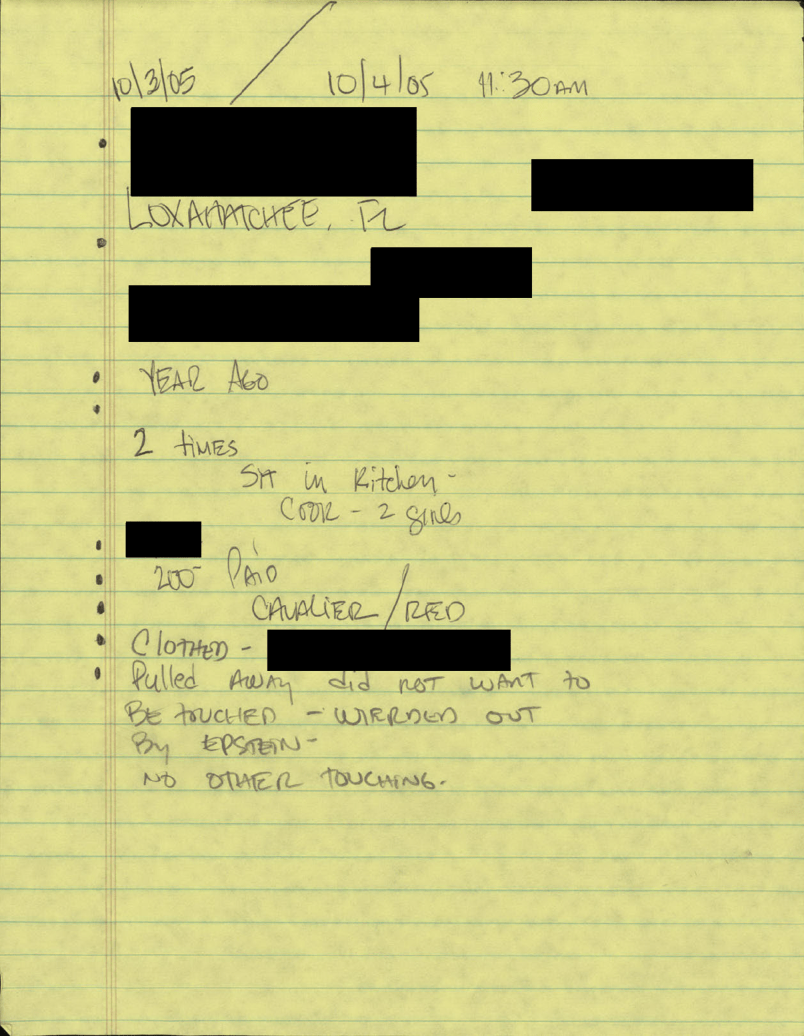 10/3/05 / 10/4/05 11:30AM
LOXAHATCHEE, FL
YEAR AGO
2 TIMES
SIT in Kitchen -
COOK - 2 girls
200- PAID
CAVALIER / RED
CLOTHED -
Pulled AWAY did NOT WANT to
BE TOUCHED - WIERDED OUT
By EPSTEIN -
NO OTHER TOUCHING.